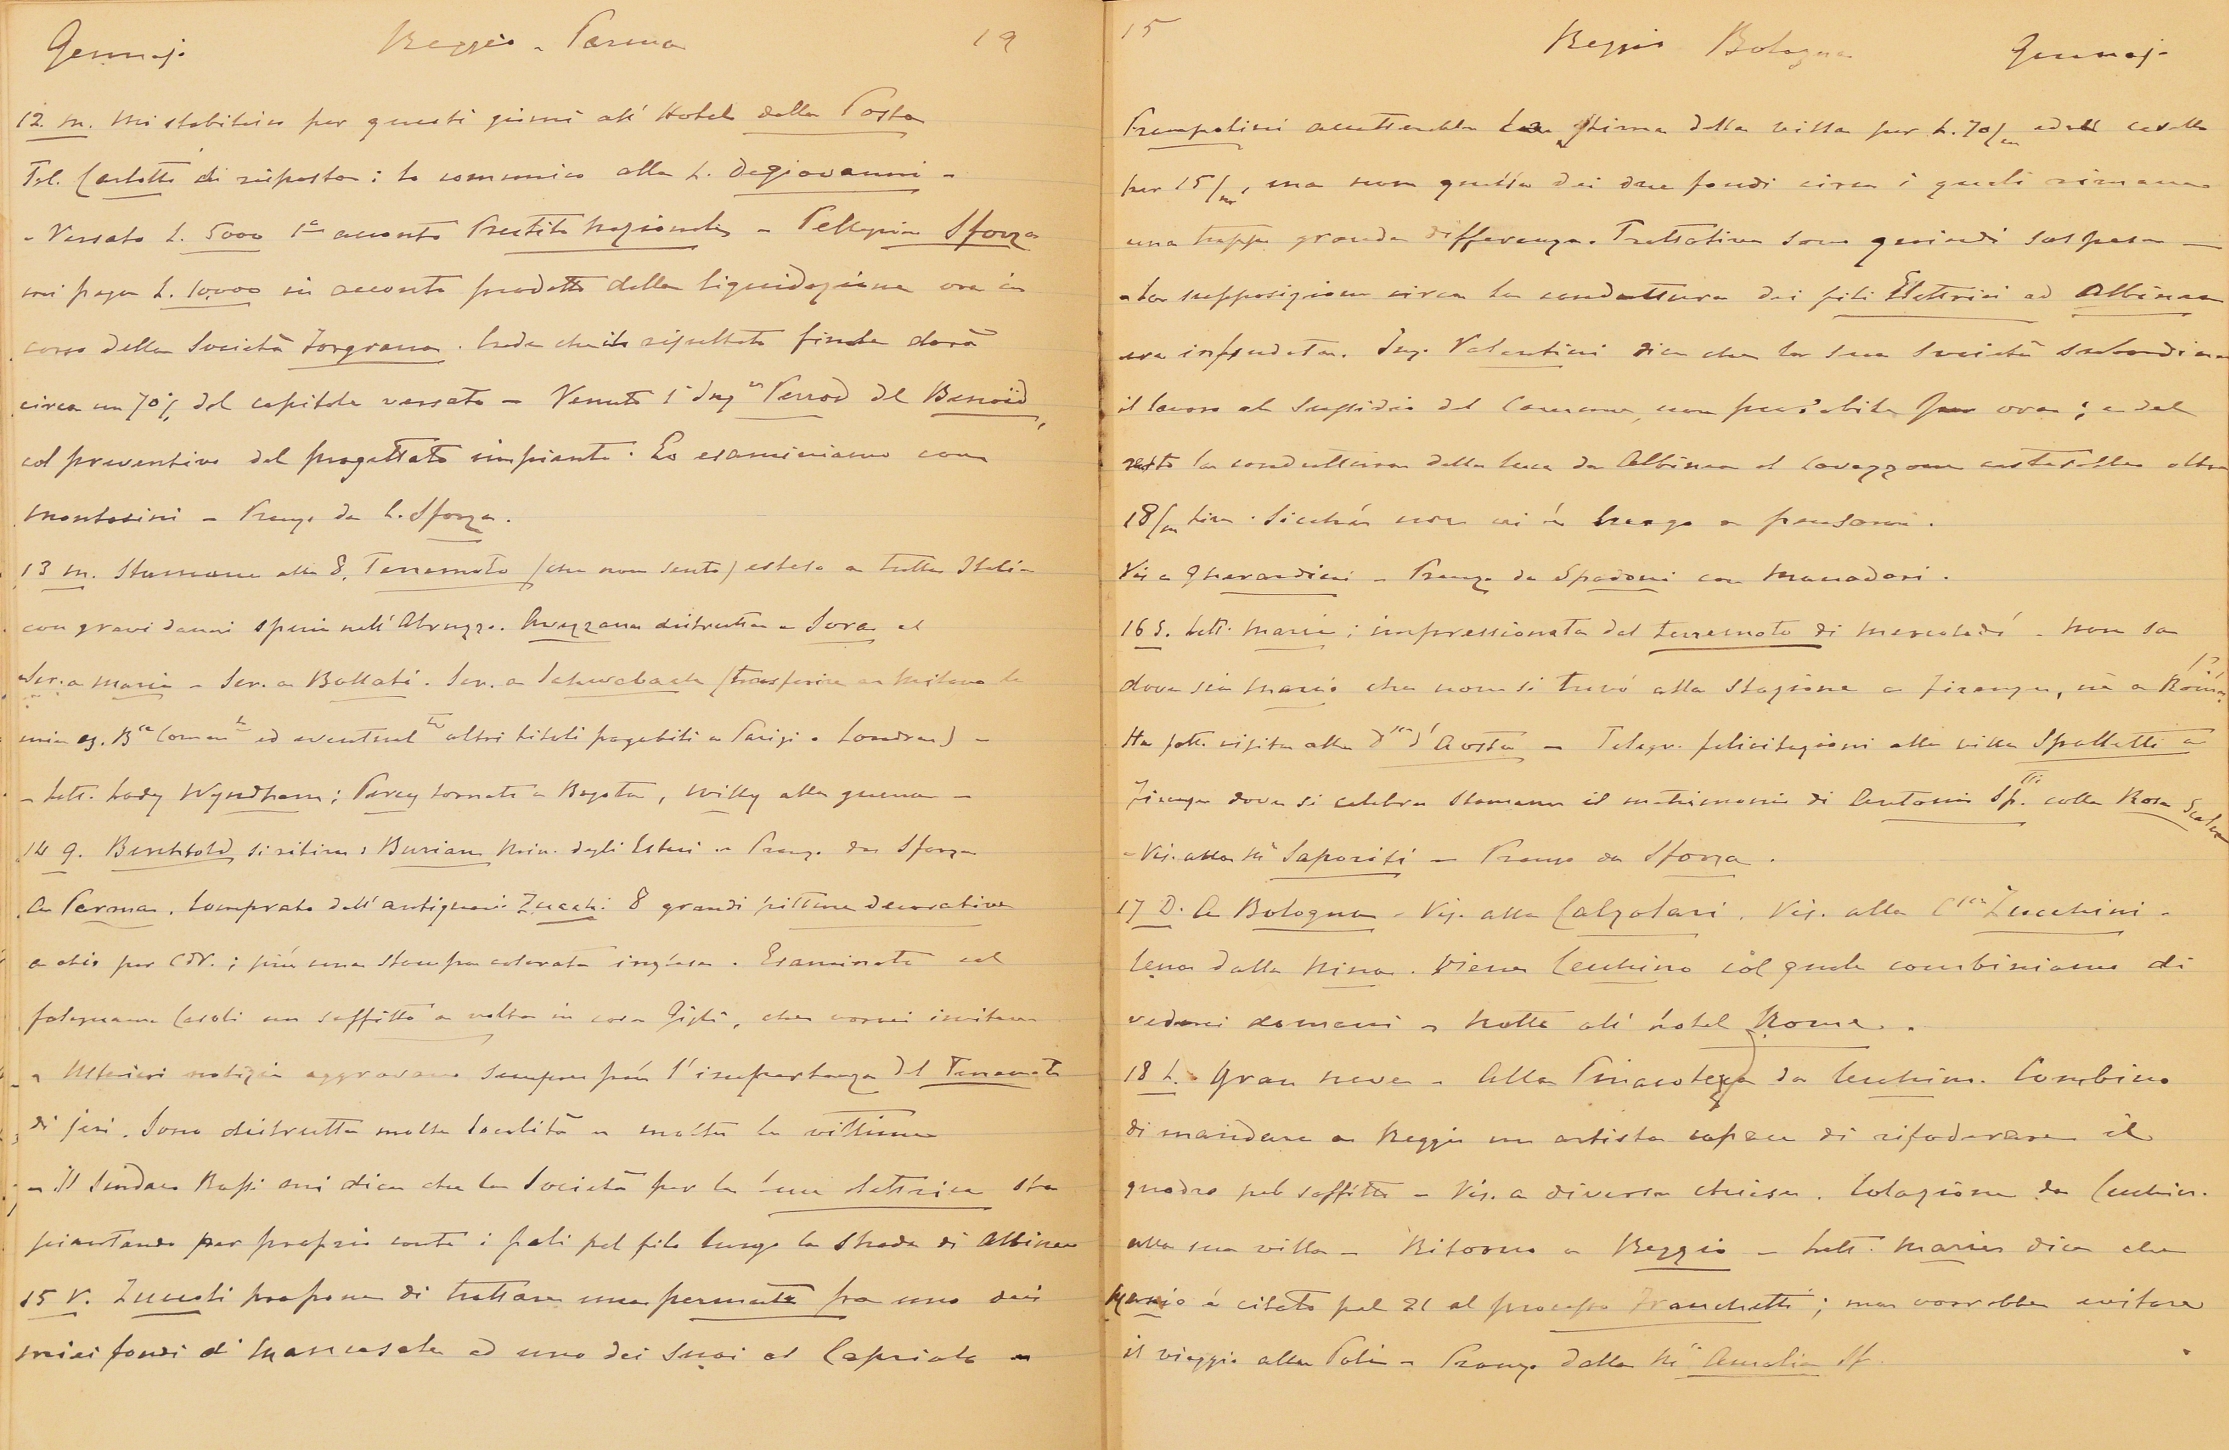 Gennajo Reggio - Parma 19
12 M. Mi stabilisco per questi giorni all' Hotel della Posta
Tel. Carlotti di risposta: lo comunico alla L. Degiovanni -
- Versato L. 5000 1° acconto Prestito Nazionale - Pellegrino Sforza
mi paga L. 10,000 in acconto prodotto della liquidazione ora in
corso della Società Zorgrana. Crede che il risultato finale darà
circa un 70% del capitale versato - Venuto l' Ing.r Perrod del Benoid,
col preventivo del progettato impianto. Lo esaminiamo con
Montasini - Pranzo da L. Sforza.
13 M. Stamane alle 8, Terremoto (che non sento) esteso a tutta Italia
con gravi danni specie nell' Abruzzo. Avezzano distrutta e Sora al
- Scr. a Maria - Scr. a Ballati. Scr. a Schwabach (trasferire a Milano le
mie az. B.ca Comm.le ed eventual.te altri titoli pagabili a Parigi o Londra) -
- Lett. Lady Wyndham; Percy tornato a Bogota, Willy alla guerra -
14 G. Berchtold si ritira: Burian Min. degli Esteri - Pranzo da Sforza
A Parma. Comprato dall' antiquario Zucchi 8 grandi pitture decorative
a olio per CdV.; più una stampa colorata inglese. Esaminato col
falegname Casoli un soffitto a volta in casa Gigli, che vorrei imitare
- Ulteriori notizie aggravano sempre più l' importanza del Terremoto
di jeri. Sono distrutte molte località e molte le vittime
- Il Sindaco Bassi mi dice che la Società per la luce elettrica sta
piantando per proprio conto i pali pel filo lungo la strada di Albinea
15 V. Zuccoli propone di trattare una permuta fra uno dei
miei fondi di Mancasale ed uno dei suoi al Capriolo -
15 Reggio Bologna Gennajo
Prampolini accetterebbe la stima della villa per L. 70/m ed il casello
per 15/m, ma non quella dei due fondi circa i quali rimane
una troppo grande differenza. Trattative sono quindi sospese -
- La supposizione circa la conduttura dei fili Elettrici ad Albinea
era infondata. Ing. Valentini dice che la sua Società subordina
il lavoro al sussidio del Comune, non possibile per ora; e del
resto la conduttura della luce da Albinea al Cavazzone costerebbe oltre
18/m lire. Sicchè non vi è luogo a pensarvi.
Vis. a Gherardini - Pranzo da Spadoni con Manadori.
16 S. Lett. Maria; impressionata dal terremoto di mercoledì - Non sa
dove sia Mario che non si trovò alla Stazione a Firenze, nè a Roma.
Ha fatto visita alla D.ssa d'Aosta - Telegr. felicitazioni alla villa Spalletti a
Firenze dove si celebra stamane il matrimonio di Antonio Sp.tti colla Rosa
- Vis. alla M.a Saporiti - Pranzo da Sforza.
17 D. A Bologna - Vis. alla Calzolari. Vis. alla C.ssa Zucchini -
Cena dalla Nina. Viene Cecchino col quale combiniamo di
vederci domani - Notte all' hotel Roma.
18 L. Gran neve - Alla Pinacoteca da Cecchino. Combino
di mandare a Reggio un artista capace di rifoderare il
quadro pel soffitto - Vis. a diverse chiese. Colazione da Cecchin.
alla sua villa - Ritorno a Reggio - Lett. Maria dice che
Mario è citato pel 21 al processo Franchetti; ma vorrebbe evitare
il viaggio alla Poli - Pranzo dalla M.a Amalia Sf.